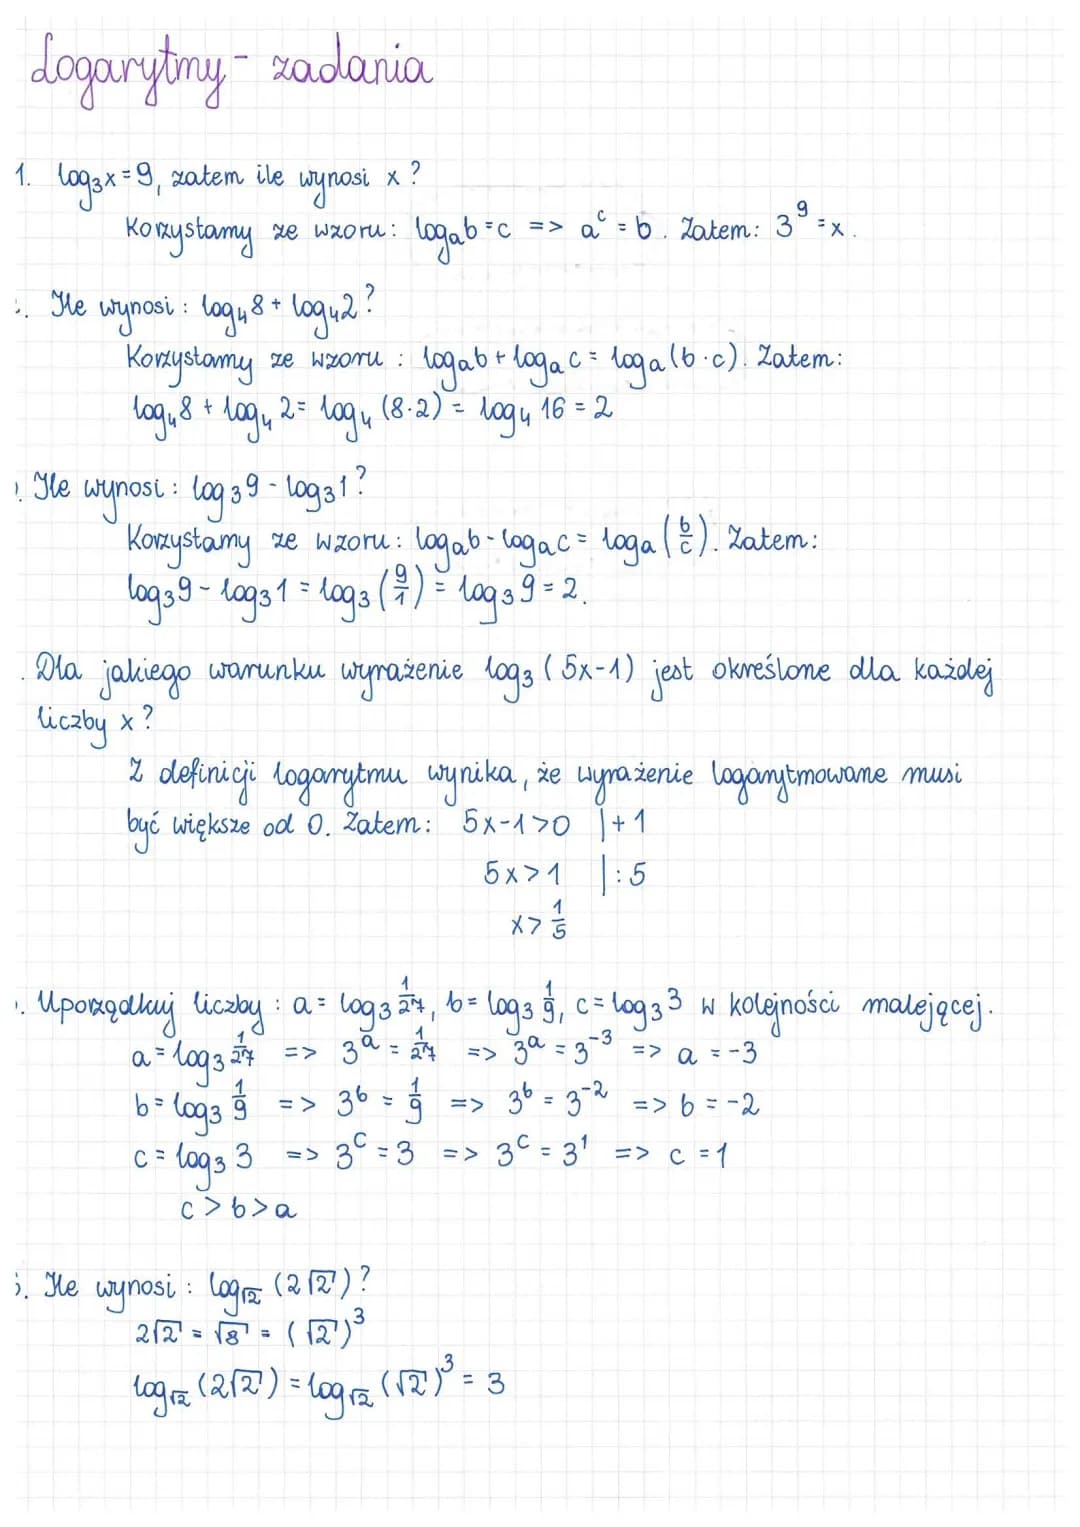 Logarytmy - zadania
1. log₃x = 9, zatem ile wynosi x?
Korzystamy ze wzoru: logₐb = c => aᶜ = b. Zatem: 3⁹ = x.
Ile wynosi: log₄8 + log₄2?
Korzystamy ze wzoru: logₐb + logₐc = logₐ(b·c). Zatem:
log₄8 + log₄2 = log₄(8·2) = log₄16 = 2
Ile wynosi: log₃9 - log₃1?
Korzystamy ze wzoru: logₐb - logₐc = logₐ(b/c). Zatem:
log₃9 - log₃1 = log₃(9/1) = log₃9 = 2.
Dla jakiego warunku wyrażenie log₃(5x-1) jest określone dla każdej
liczby x?
Z definicji logarytmu wynika, że wyrażenie logarytmowane musi
być większe od 0. Zatem: 5x-1>0 |+1
5x>1 |:5
x>1/5
Uporządkuj liczby: a = log₃ 1/27, b = log₃ 1/9, c = log₃3 w kolejności malejącej.
a = log₃ 1/27 => 3ᵃ = 1/27 => 3ᵃ = 3⁻³ => a = -3
b = log₃ 1/9 => 3ᵇ = 1/9 => 3ᵇ = 3⁻² => b = -2
c = log₃ 3 => 3ᶜ = 3 => 3ᶜ = 3¹ => c = 1
c > b > a
Ile wynosi: log√2 (2√2)?
2√2 = √8 = (√2)³
log√2 (2√2) = log√2 (√2)³ = 3